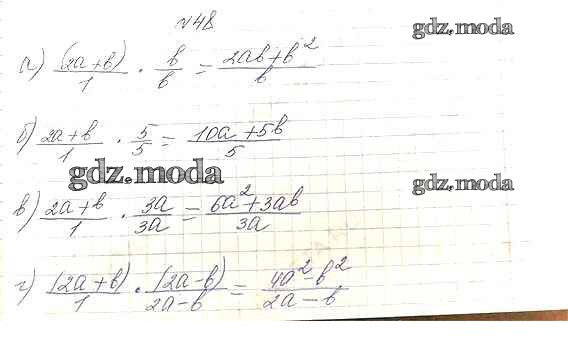 №48
gdz.moda
а) (2a+b)/1 · b/b = 2ab+b²/b
б) 2a+b/1 · 5/5 = 10a+5b/5
gdz.moda
gdz.moda
в) 2a+b/1 · 3a/3a = 6a²+3ab/3a
г) (2a+b)/1 · (2a-b)/2a-b = 4a²-b²/2a-b